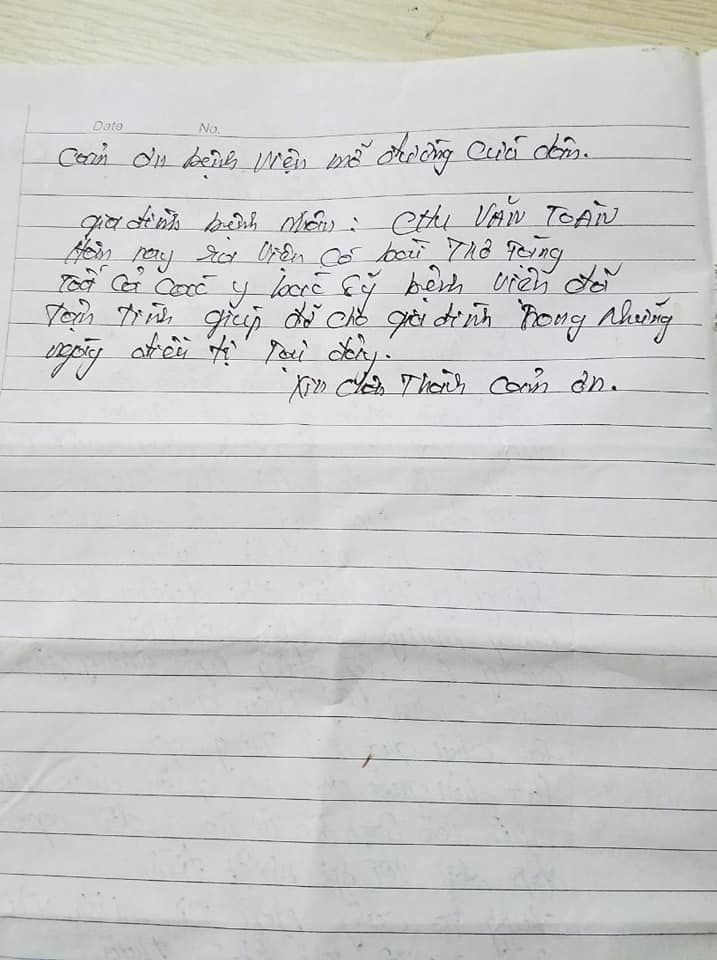 Date No.
Cảm ơn bệnh viện mở đường cứu dân.
gia đình bệnh nhân: CHU VĂN TOÀN
Hôm nay ra viện có bài Thơ Tặng
Tất cả các y bác sỹ bệnh viện đã
Tận tình giúp đỡ cho gia đình Trong những
ngày điều trị Tại đây.
Xin chân Thành cảm ơn.